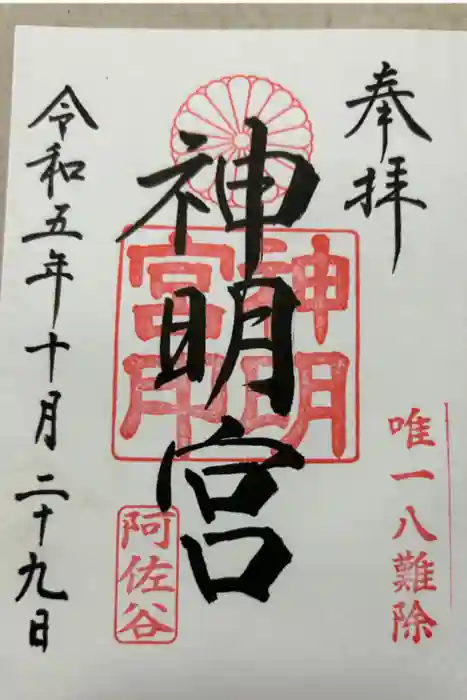 奉拝
唯一八難除
神明宮
神明
宮印
阿佐谷
令和五年十月二十九日